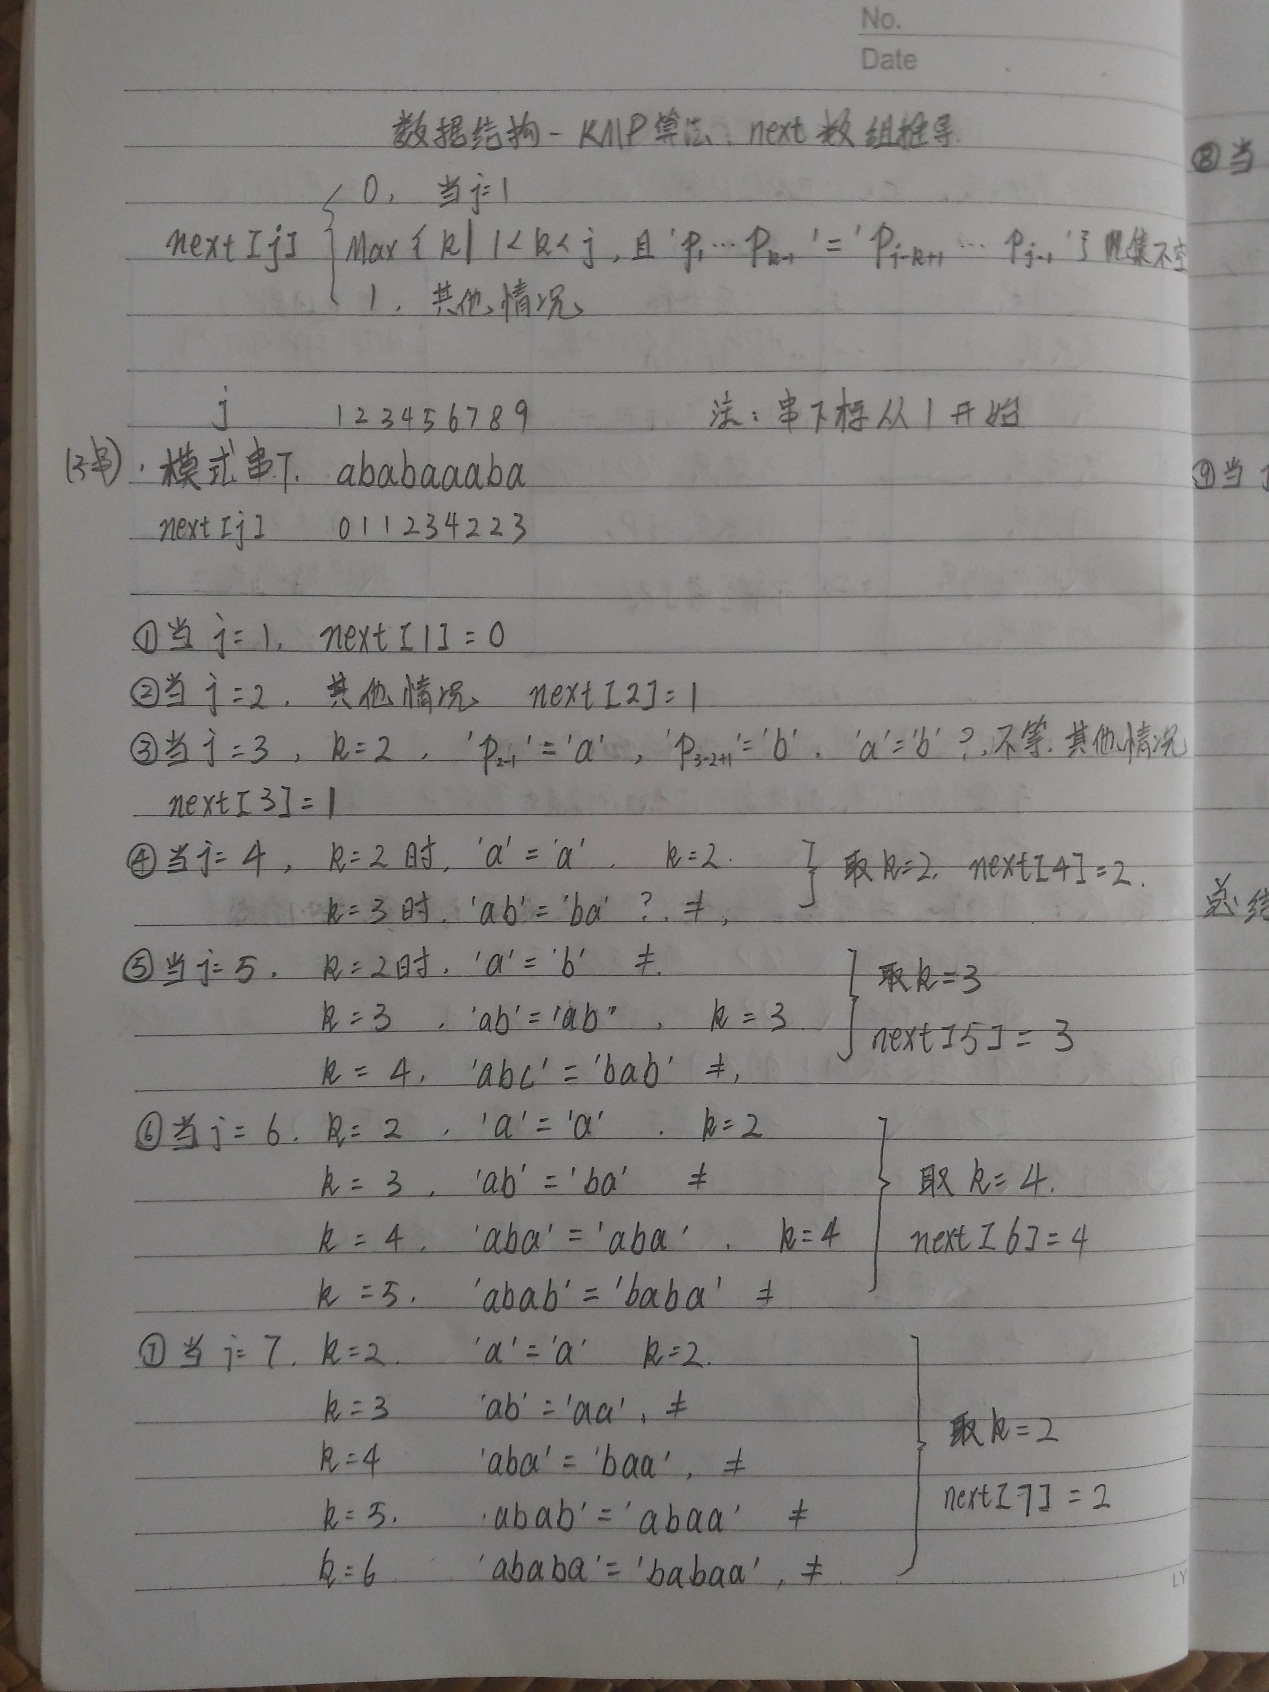 No.
Date
数据结构-KMP算法:next数组推导
0, 当j=1
next[j] Max{k|1<k<j,且'P1…Pk-1'='Pj-k+1…Pj-1'}此集不空
1. 其他情况
j 123456789 注:串下标从1开始
(子串).模式串T. ababaaaba
next[j] 011234223
①当j=1. next[1]=0
②当j=2. 其他情况 next[2]=1
③当j=3, k=2. 'P2-1'='a', 'P3-2+1'='b'. 'a'='b'?,不等.其他情况
next[3]=1
④当j=4, k=2时, 'a'='a'. k=2.
k=3时. 'ab'='ba'?. ≠,
取k=2. next[4]=2.
⑤当j=5. k=2时. 'a'='b' ≠.
k=3 . 'ab'='ab". k=3
k=4. 'abc'='bab' ≠,
取k=3
next[5]=3
⑥当j=6. k=2 . 'a'='a' . k=2
k=3. 'ab'='ba' ≠
k=4. 'aba'='aba'. k=4
k=5. 'abab'='baba' ≠
取k=4.
next[6]=4
⑦当j=7. k=2. 'a'='a' k=2.
k=3 'ab'='aa', ≠
k=4 'aba'='baa', ≠
k=5. 'abab'='abaa' ≠
k=6 'ababa'='babaa', ≠
取k=2
next[7]=2
⑧当
⑨当
总结
LY